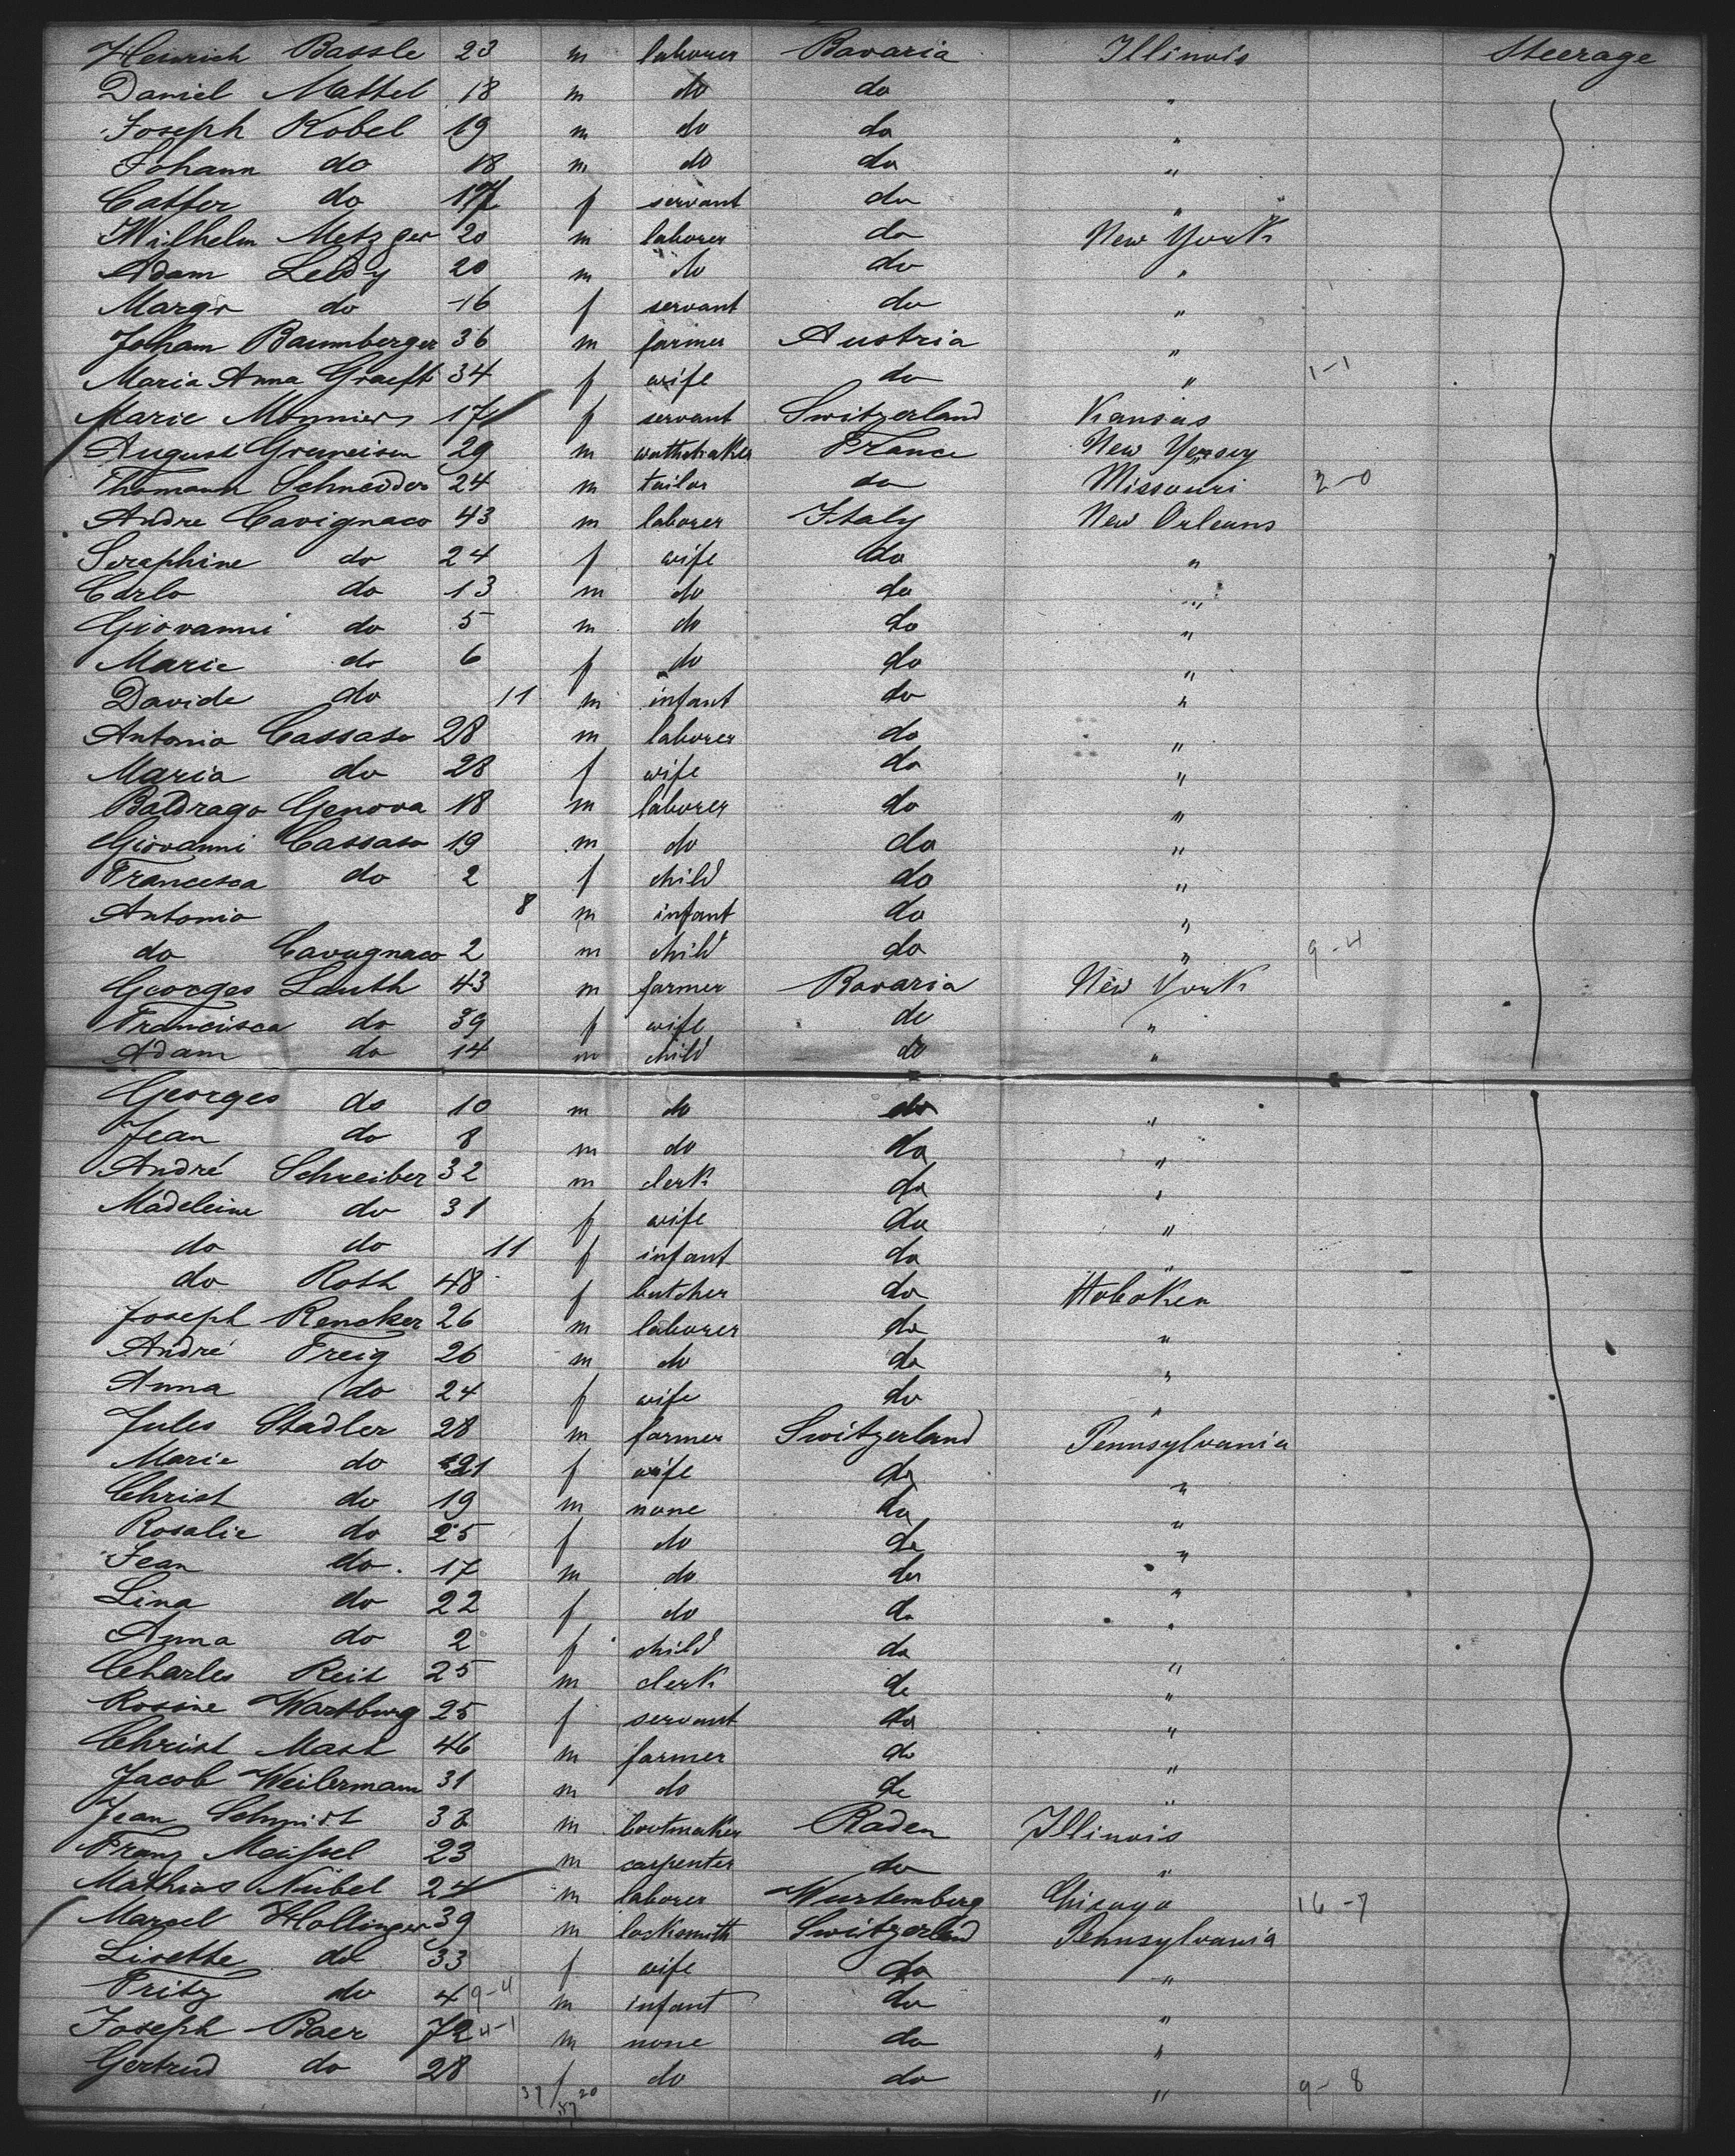 Heinrich Bassle 23 m laborer Bavaria Illinois Steerage
Daniel Mattel 18 m do do "
Joseph Kobel 19 m do do "
Johann do 18 m do do "
Cather do 17 f servant do "
Wilhelm Metzger 20 m laborer do New York
Adam Leddy 20 m do do "
Margr do 16 f servant do "
Joham Baumberger 36 m farmer Austria "
Maria Anna Graeft 34 f wife do " 1-1
Marie Monniers 17 f servant Switzerland Kansas
August Gruneisen 29 m France New Yersey
Thomann Schneider 24 m tailor do Missouri 2-0
Andre Cavignaco 43 m laborer Italy New Orleans
Seraphine do 24 f wife do "
Carlo do 13 m do do "
Giovanni do 5 m do do "
Marie do 6 f do do "
Davide do 11 m infant do "
Antonio Cassaso 28 m laborer do "
Maria do 28 f wife do "
Badrago Genova 18 m laborer do "
Giovanni Cassaso 19 m do do "
Francesca do 2 f child do "
Antonio 8 m infant do "
do Cavagnaco 2 m child do " 9-4
Georges Lauth 43 m farmer Bavaria New York
Francisca do 39 f wife do "
Adam do 14 m child do "
Georges do 10 m do do "
Jean do 8 m do do "
André Schreiber 32 m clerk do "
Madeleine do 31 f wife do "
do do 11 f infant do "
do Roth 48 f butcher do Hoboken
Joseph Rencker 26 m laborer do "
André Freig 26 m do do "
Anna do 24 f wife do "
Jules Stadler 28 m farmer Switzerland Pennsylvania
Marie do 21 f wife do "
Christ do 19 m none do "
Rosalie do 25 f do do "
Jean do 17 m do do "
Lina do 22 f do do "
Anna do 2 f child do "
Charles Reist 25 m clerk do "
Rosine Wartburg 25 f servant do "
Christ Mast 46 m farmer do "
Jacob Weilermann 31 m do do "
Jean Schmidt 33 m bootmaker Baden Illinois
Franz Meissel 23 m carpenter do "
Mathias Nübel 24 m laborer Wurtemberg Chicago 16-7
Marcel Hollinger 39 m locksmith Switzerland Pennsylvania
Lisette do 33 f wife do "
Fritz do 4 9-4 m infant do "
Joseph Baer 72 4-1 m none do "
Gertrud do 28 f do do " 9-8
37/57 20